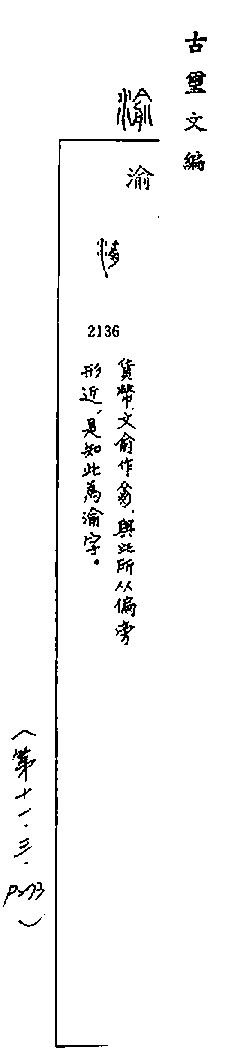 古璽文編
渝
2136
貨幣文俞作，與此所从偏旁
形近，是知此為渝字。
（第十一．三．